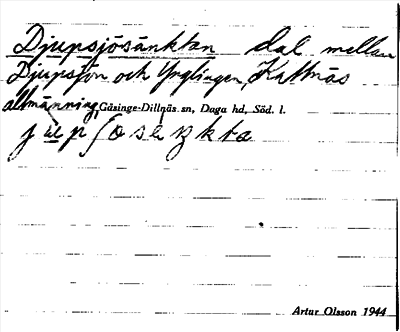 Djupsjösänktan dal mellan
Djupsjön och Ynglingen, Kattnäs
allmänning, Gåsinge-Dillnäs sn, Daga hd, Söd. l.
Artur Olsson 1944